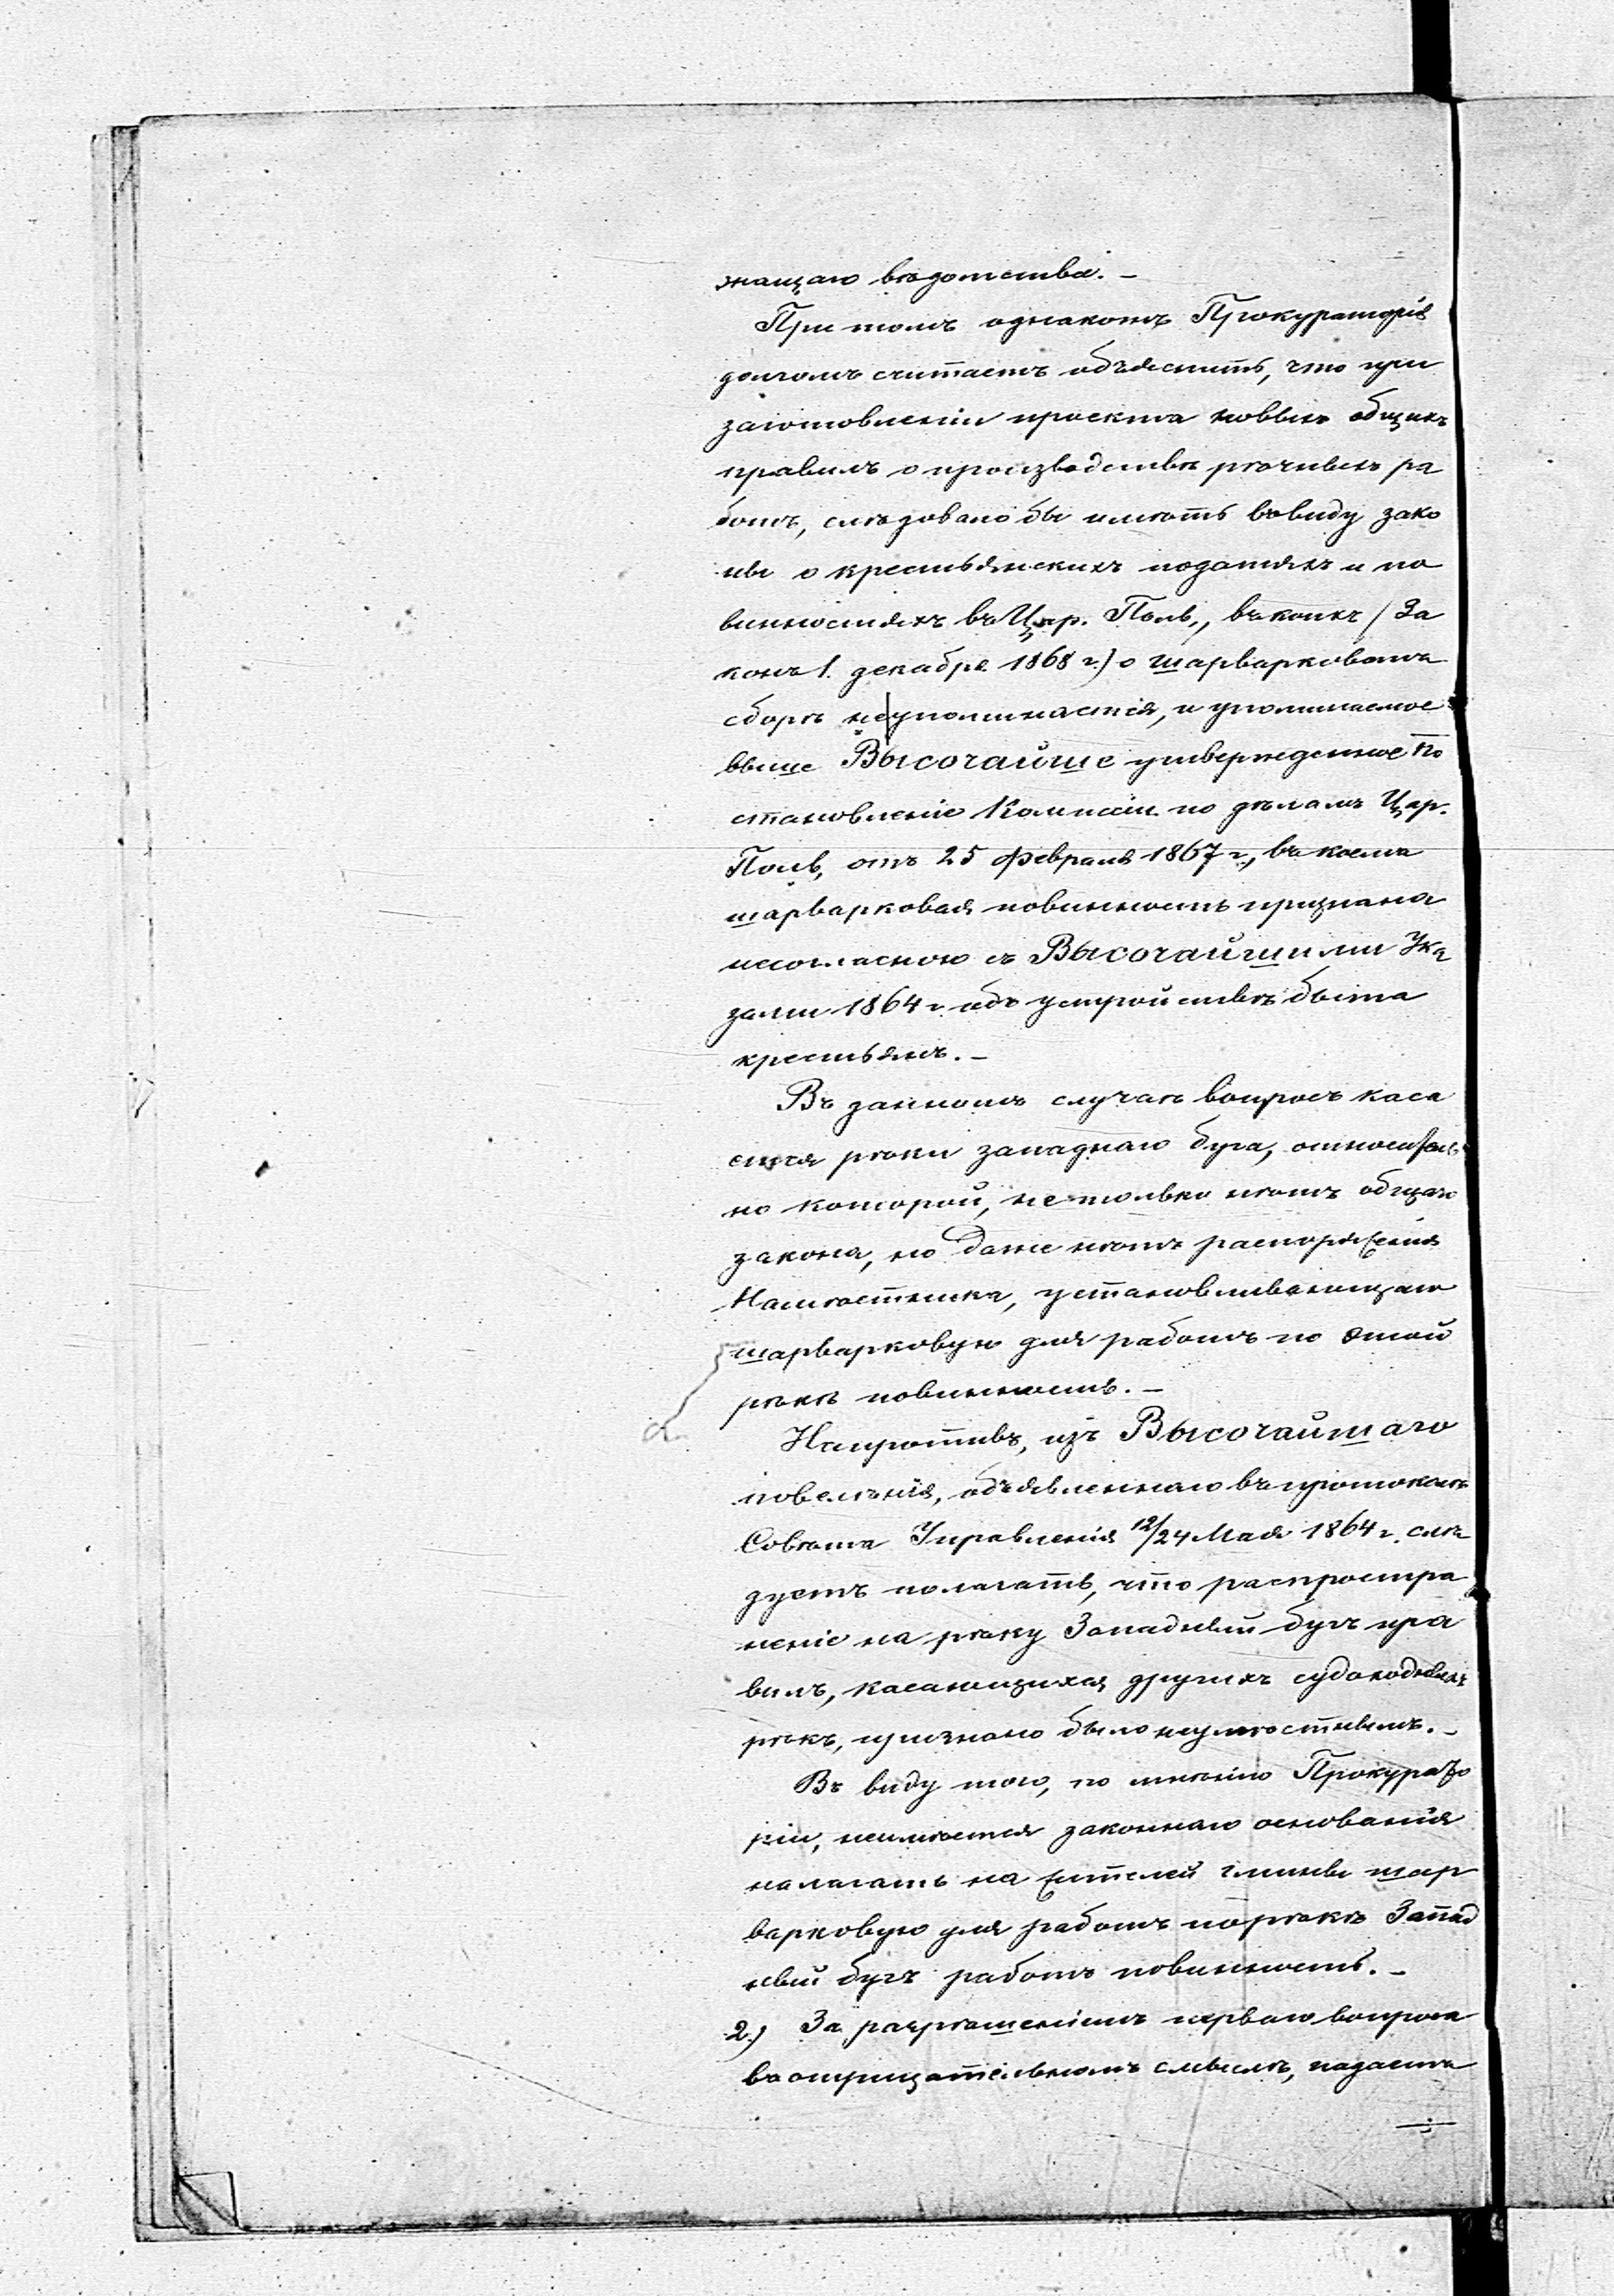 жащаго вѣдомства. –
При томъ однакожъ Прокураторія
долгомъ считаетъ объяснить, что при
заготовленіи проекта новыхъ общихъ
правилъ о производствѣ рѣчныхъ ра
ботъ, слѣдовало бы имѣть въ виду зако
ны о крестьянскихъ податяхъ и по
винностяхъ въ Цар. Поль., въ коихъ /За
конъ 1. декабря 1868 г.) о шарварковомъ
сборѣ не упоминается, и упоминаемое
выше Высочайше утвержденное По
становленіе Комиссіи по дѣламъ Цар.
Поль, отъ 25 февраля 1867 г., въ коемъ
шарварковая повинность признана
несогласною съ Высочайшими Ука
зами 1864 г. объ устройствѣ быта
крестьянъ. –
Въ данномъ случаѣ вопросъ каса
ется рѣки западнаго буга, относитель
но которой, не только нѣтъ общаго
закона, но даже нѣтъ распоряженія
Намѣстника, установливающаго
шарварковую для работъ по этой
рѣкѣ повинность. –
Напротивъ, изъ Высочайшаго
повелѣнія, объявленнаго въ протоколѣ
Совѣта Управленія 12/24 Мая 1864 г. слѣ
дуетъ полагать, что распростра
неніе на рѣку Западный бугъ пра
вилъ, касающихся другихъ судоходныхъ
рѣкъ, признано было неумѣстнымъ. –
Въ виду того, по мнѣнію Прокурато
ріи, неимѣется законнаго основанія
налагать на жителей гмины шар
варковую для работъ по рѣкѣ Запад
ный бугъ работъ повинность. –
2.) За разрѣшеніемъ перваго вопроса
въ отрицательномъ смыслѣ, падаетъ